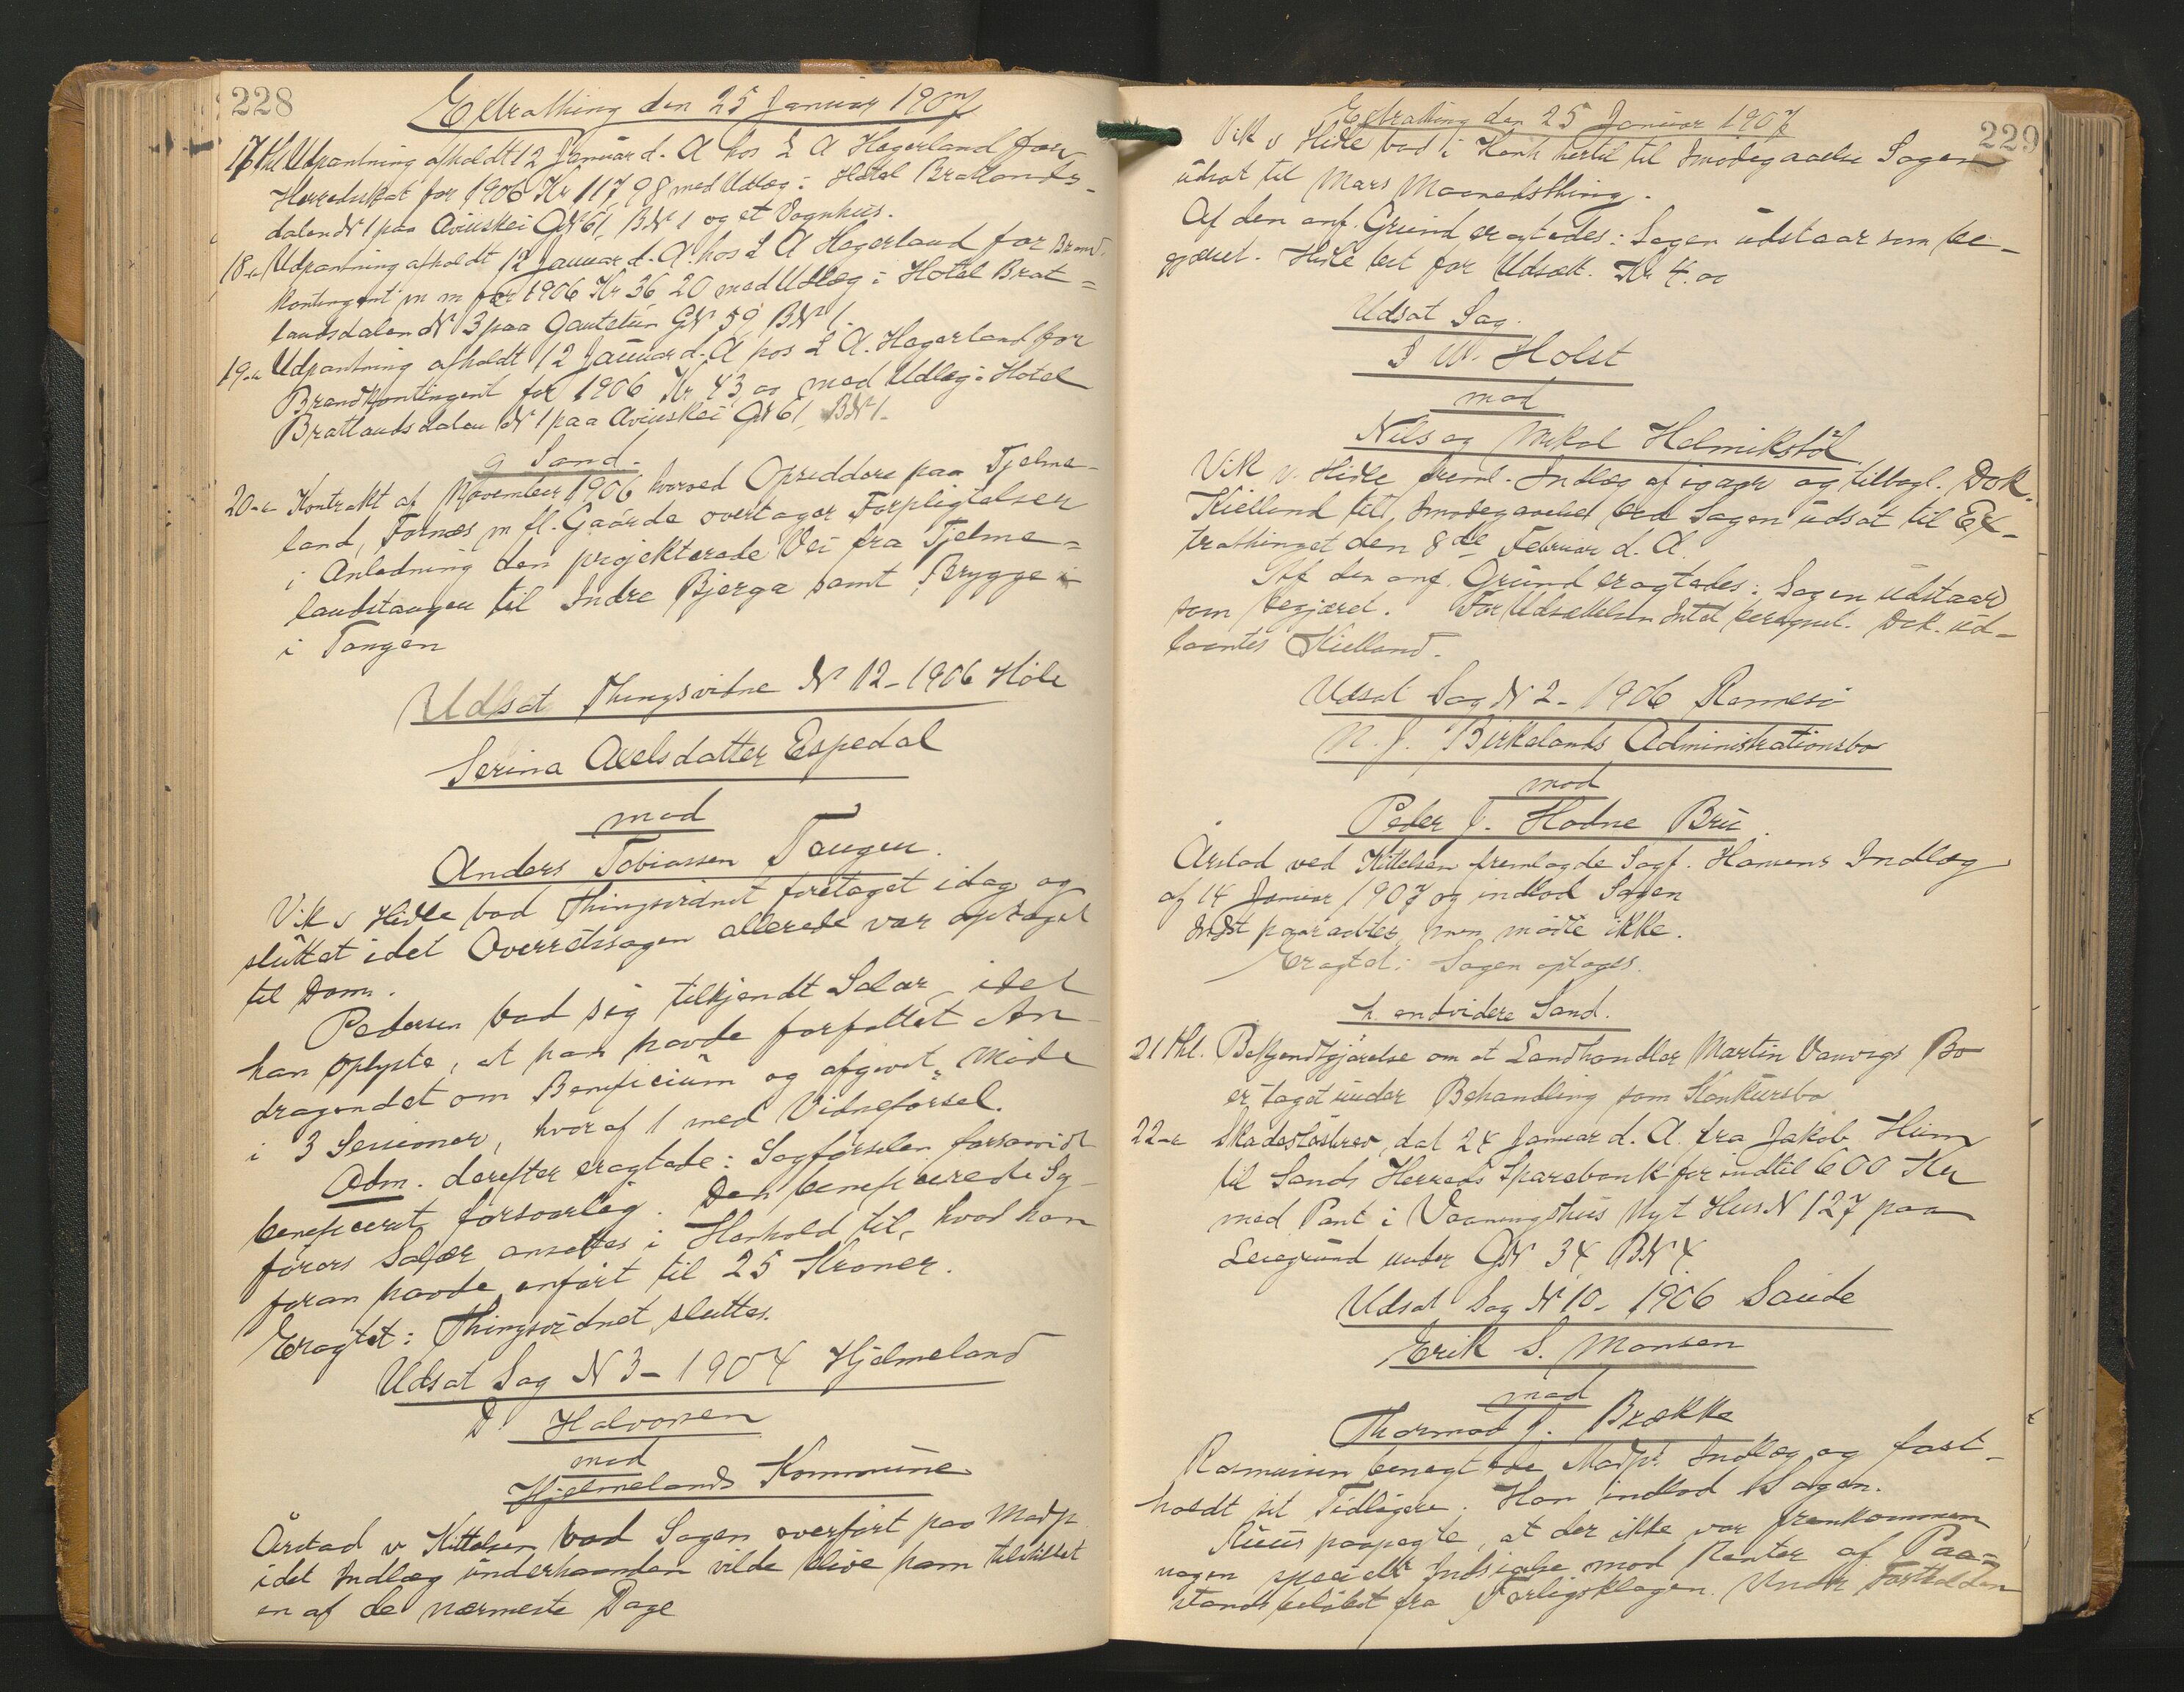 228
Extrathing den 25 Januar 1907
17 thl Udpantning afholdt 12 Januar d. A hos L A Hagerland for
Herredsskat for 1906 Kr 117,98 med Udlæg i Hotel Bratlands-
dalen N 1 paa GN 61, BN 1 og et Vognhus.
18-" Udpantning afholdt 12 Januar d. A. hos L A Hagerland for Brand-
kontingent m m for 1906 Kr 36 20 med Udlæg i Hotel Brat=
landsdalen N 3 paa Gautetun GN 59 BN 1.
19-" Udpantning afholdt 12 Januar d. A hos L A. Hagerland for
Brandkontingent for 1906 Kr 43,00 med Udlæg i Hotel
Bratlandsdalen N 1 paa GN 61 BN 1-
g Sand.
20-" Kontrakt af November 1906 hvorved Opsiddere paa Tjelme-
land, Fornæs m fl. Gaarde overtager Forpligtelser
i Anledning den projekterede Vei fra Tjelme=
landstangen til Indre Bjerga samt Brygge i
i Tangen
Udsat Thingsvidne N 12-1906 Höle
Serina Axelsdatter Espedal
mod
Anders Tobiassen Tengen.
Vik v Hidle bad Thingsvidnet foretaget idag og
sluttet idet Overretssagen allerede var optaget
til Dom.
Pedersen bad sig tilkjendt Salær, idet
han oplyste, at han havde forfattet An-
dragendet om Beneficium og afgivet Möde
i 3 Sessioner, hvoraf 1 med Vidneförsel.
Adm. derefter eragtede: Sagförselen forsaavidt
beneficeret forsvarlig. Den beneficerede Sag-
förers Salær ansættes i Henhold til, hvad han
foran havde anfört til 25 Kroner.
Eragtet: Thingsvidnet sluttes.
Udsat Sag N 3-1904 Hjelmeland
D Halvorsen
mod
Hjelmelands Kommune
Årstad v Kittelsen bad Sagen overfört paa Modp
idet Indlæg underhaanden vilde blive ham tilstillet
en af de nærmeste Dage
229
Extrathing den 25 Januar 1907
Vik v Hidle bad i Henh hertil til Imödegaaelse Sagen
udsat til Mars Maanedsthing.
Af den anf. Grund eragtedes: Sagen udstaar som be-
gjæret. Hidle bet for Udsætt. Kr 4.00
Udsat Sag.
I W. Holst
mod
Nils og Mikal Helmikstöl
Vik v. Hidle freml. Indlæg af igaar og tilbagl. Dok.
Kielland til Imödegaaelse bad Sagen udsat til Ex-
trathinget den 8de Februar d. A.
Af den anf. Grund eragtedes: Sagen udstaar
som begjæret. For Udsættelsen Intet beregnet. Dok. ud-
laantes Kielland.
Udsat Sag N 2-1906 Rennesö
N. J. Birkelands Administrationsbo
mod
Peder J. Hodne Bru.
Årstad ved Kittelsen fremlagde Sagf. Hansens Indlæg
af 14 Januar 1907 og indlod Sagen
Indst paaraabtes, men mödte ikke.
Eragtet: Sagen optages.
h. endvidere Sand.
21 thl. Bekjendtgjörelse om at Landhandler Martin Vanvigs Bo
er taget under Behandling som Konkursbo
22-" Skadeslösbrev, dat 24 Januar d. A. fra Jakob Heim
til Sands Herreds Sparebank for indtil 600 Kr
med Pant i Vaaningshus Nyt Hus N 127 paa
Leiegrund under GN 34 BN 4
Udsat Sag N 10-1906 Saude
Erik S. Monsen
mod
Thormod J. Brække
Rasmussen benegtede Modp's Indlæg og fast-
holdt sit Tidligere. Han indlod Sagen.
Ruus paapegte, at der ikke var fremkommen
nogen speciell Indsigelse mod Renter af Paa=
standsbelöbet fra Forligsklagen. Under